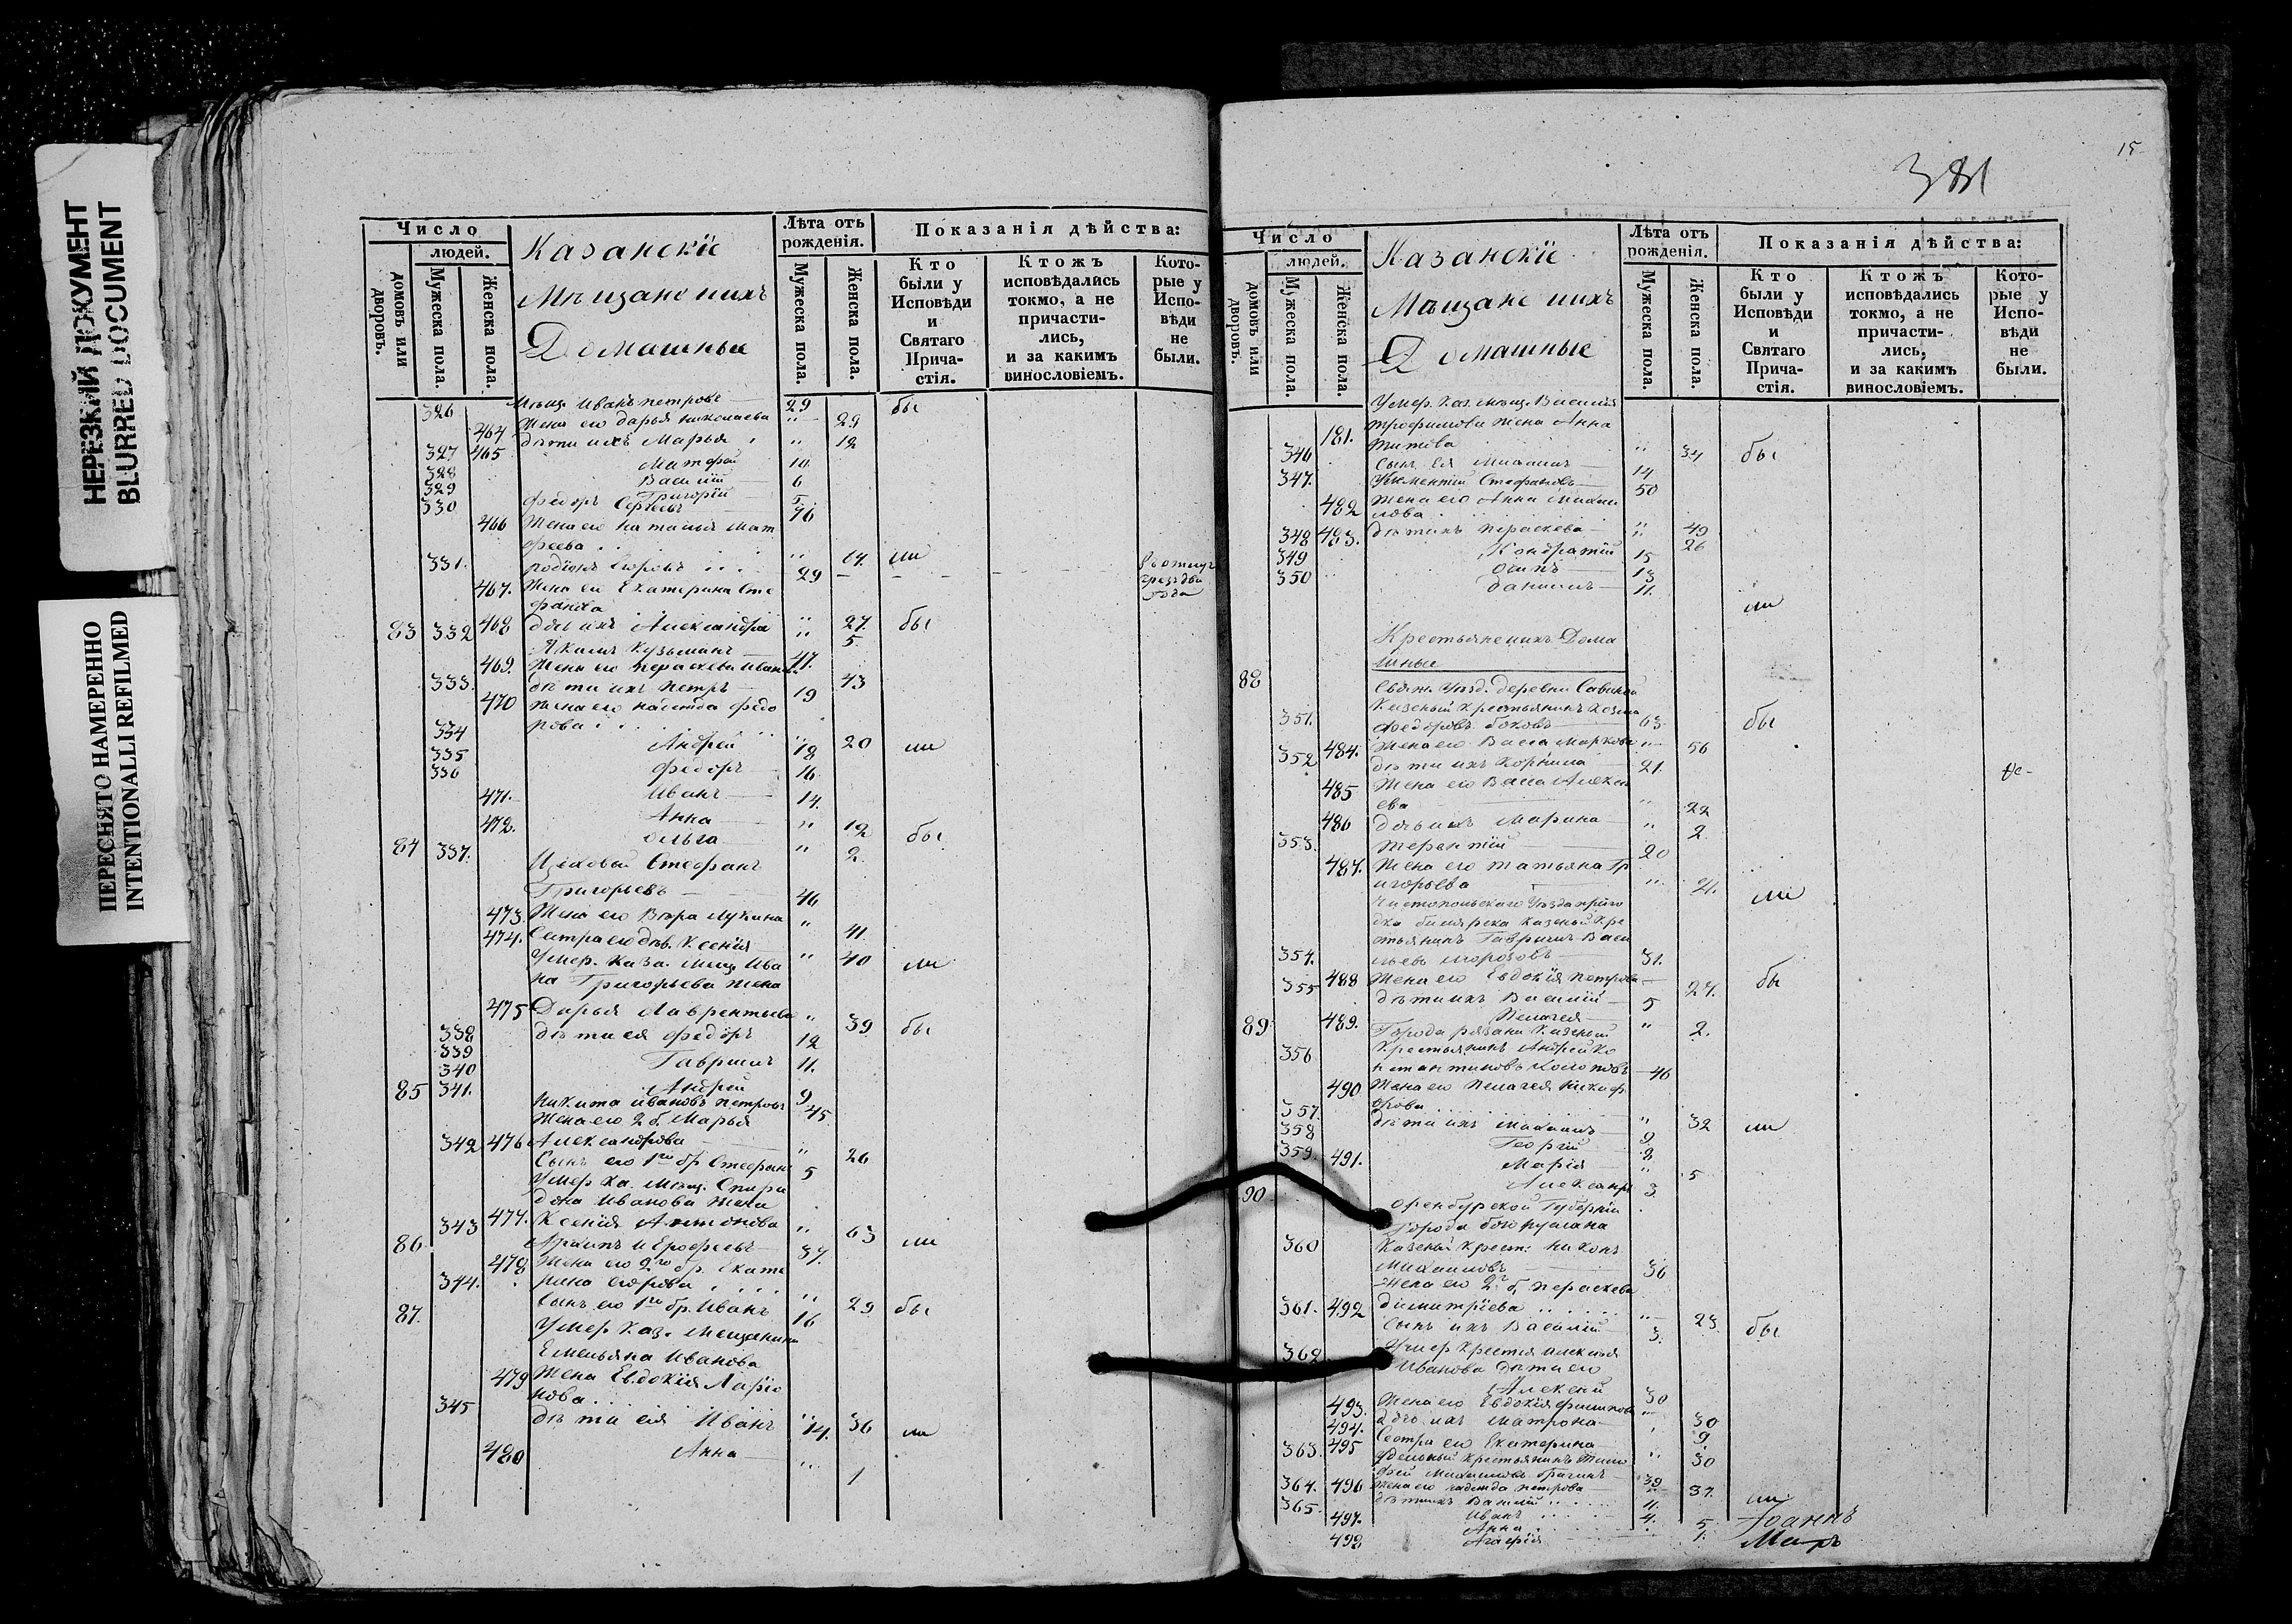 НЕРЕЗКИЙ ДОКУМЕНТ
BLURRED DOCUMENT
ПЕРЕСНЯТО НАМЕРЕННО
INTENTIONALLI REFILMED
Число
людей.
домовъ или дворовъ.
Мужеска пола.
Женска пола.
Казанскіе
Мѣщане ихъ
Домашные
Лѣта отъ рожденія.
Мужеска пола.
Женска пола.
Показанія дѣйства:
Кто были у Исповѣди и Святаго Прича-стія.
Ктожъ исповѣдались токмо, а не причасти-лись, и за какимъ винословіемъ.
Кото-рые у Испо-вѣди не были.
326 Мѣщ. Иванъ Петровъ 29 бы
464 Жена его Дарья Николаева " 29
327 465 дѣти ихъ Марья " 12
328 Матфей 10
329 Василій 6
Григорій 5
330 Федоръ Сергеевъ 76
466 Жена его Наталья Мат
феева " 64 ли
331. Родіонъ Егоровъ 29
467. Жена его Екатерина Сте
фанова " 27. бы
83 332 468 дочь ихъ Александра " 5.
Якимъ Кузьминъ 47.
469. Жена его Параскева Иванов. 43
333. дѣти ихъ Петръ 19
470 жена его Надежда Федо
рова " 20 ли
334 Андрей 18
335 Федоръ 16
336 Иванъ 14
471. Анна " 12 бы
472. Ольга " 2.
84 337. Цеховой Стефанъ
Григорьевъ 46
473. Жена его Вѣра Лукина " 41
474. Сестра его дѣв. Ксенія " 40 ли
Умер. Каза. мещ. Ива
на Григорьева жена
475 Дарья Лаврентьева " 39 бы
338 дѣти ея Федоръ 12
339 Гаврилъ 11.
340 Андрей 9
85 341. Никита Ивановъ Петровъ 45
Жена его 2 б. Марья
342 476 Александрова " 26
Сынъ его 1го бр. Стефанъ 5
Умер. Ка. мѣщ. Спири
дона Иванова жена
343 477. Ксенія Антонова " 63 ли
86 Архипъ Ерофеевъ 37.
478 Жена его 2го бр. Екате
344. рина Егорова " 29 бы
87. Сынъ его 1го бр. Иванъ 16
Умер. Каз. Мещанина
Емельяна Иванова
479 Жена Евдокія Ларіо
нова " 36 ли
345 дѣти ея Иванъ 14.
480 Анна " 1
15
381
Число
людей.
домовъ или дворовъ.
Мужеска пола.
Женска пола.
Казанскіе
Мѣщане ихъ
Домашные
Лѣта отъ рожденія.
Мужеска пола.
Женска пола.
Показанія дѣйства:
Кто были у Исповѣди и Святаго Прича-стія.
Ктожъ исповѣдались токмо, а не причасти-лись, и за какимъ винословіемъ.
Кото-рые у Испо-вѣди не были.
Умер. Каз. мѣщ. Василья
Трофимова жена Анна
181. Титова " 34 бы
346 Сынъ ея Михаилъ 14
347. Климентій Стефановъ 50
482 Жена его Анна Михаи
лова " 49
348 483. дѣти ихъ Параскева " 26
349 Кондратій 15
350 Осипъ 13
Даніилъ 11. ли
Крестьяне ихъ Дома
шные
88 Свіяж. Уѣзд. деревни
Казеный крестьянинъ Козма
351. Федоровъ 63 бы
484. Жена его Васса Маркова " 56
352 дѣти ихъ Корнила 21.
485 Жена его Васса Алексе
ева " 22
486 дочь ихъ Марина " 2.
353. Терентій 20
487. Жена его Татьяна Гр
игорьева " 21. ли
Чистопольскаго Уѣзда приго
дка Билярска казеный кре
стьянинъ Гаврилъ Васи
354. льевъ Морозовъ 31.
488 Жена его Евдокія Петрова 27. бы
355 дѣти ихъ Василій 5
489. Пелагея " 2.
89 Города Рязани Казеный
356 Крестьянинъ Андрей Ко
нстантиновъ 46
490 Жена его Пелагея Никиф
орова " 32 ли
357. дѣти ихъ Михаилъ 9
358 Георгій 2
359. 491. Марія " 5
Александръ 3
90 Оренбургской Губерніи
Города Богоруслана
360 Казеный Крест: Никонъ
Михаиловъ 36
Жена его 2 б. Параскева
361. 492 Димитріева " 23 бы
Сынъ ихъ Василій 3.
362 Умер. Крестья. Алексѣя
Иванова дѣти его
Алексей 30
493. Жена его Евдокія Филипова " 30
494. дочь ихъ Матрона " 9.
495 Сестра его Екатерина " 30
363. Удельный крестьянинъ Тимо
фей Михаиловъ 39
364. 496 Жена его Надежда Петрова " 37. ли
365. дѣти ихъ Василій 11.
Иванъ 4.
497. Анна 5
498 Агафія 1.
Іоаннъ